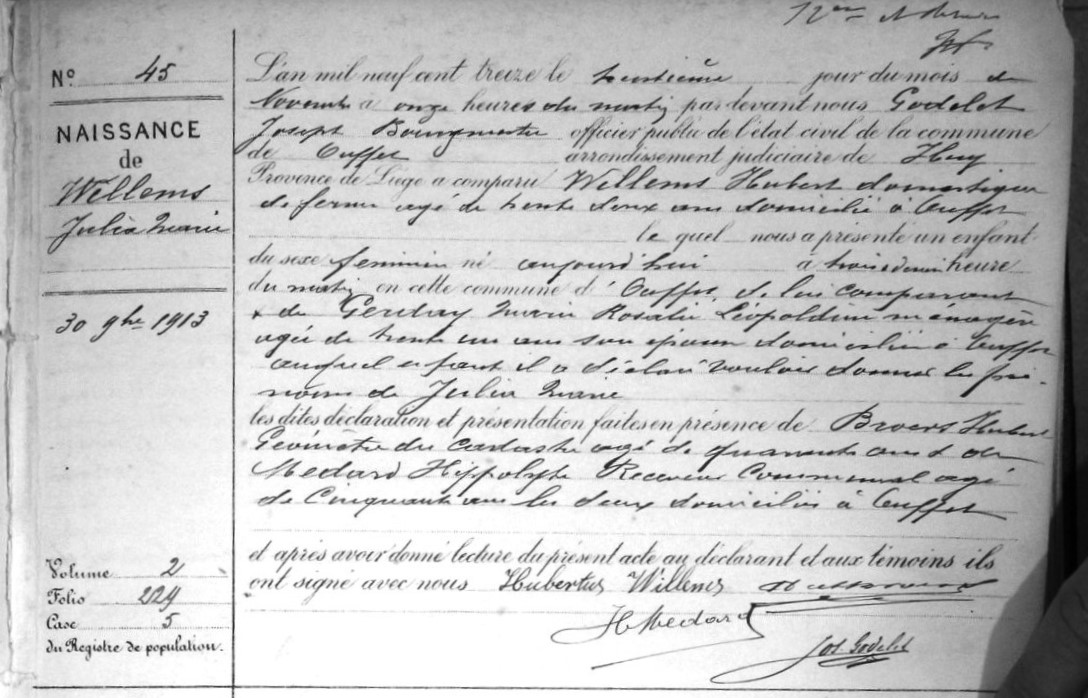 Nº 45
NAISSANCE
de
Willems
Julia Marie
30 9bre 1913
Volume 2
Folio 224
Case 5
du Registre de population.
L'an mil neuf cent treize le trentième jour du mois de
Novembre à onze heures du matin par devant nous Godelet
Joseph Bourgmestre officier public de l'état civil de la commune
de Ouffet arrondissement judiciaire de Huy
Province de Liége a comparu Willems Hubert domestique
de ferme agé de trente deux ans domicilié à Ouffet
le quel nous a présenté un enfant
du sexe feminin né aujourd'hui à trois heure
du matin en cette commune d'Ouffet, de lui comparant
& de Gerday Marie Rosalie Léopoldine menagère
agée de trente un ans son épouse domiciliée à Ouffet
auquel enfant il a déclaré vouloir donner les pré-
noms de Julia Marie
les dites déclaration et présentation faites en présence de Broers Hubert
Géomètre du cadastre agé de quarante ans & de
Medard Hippolyte Receveur Communal agé
de Cinquante ans les deux domiciliés à Ouffet
et après avoir donné lecture du présent acte au déclarant et aux témoins ils
ont signé avec nous Hubertus Willems
H Medard
Jos. Godelet